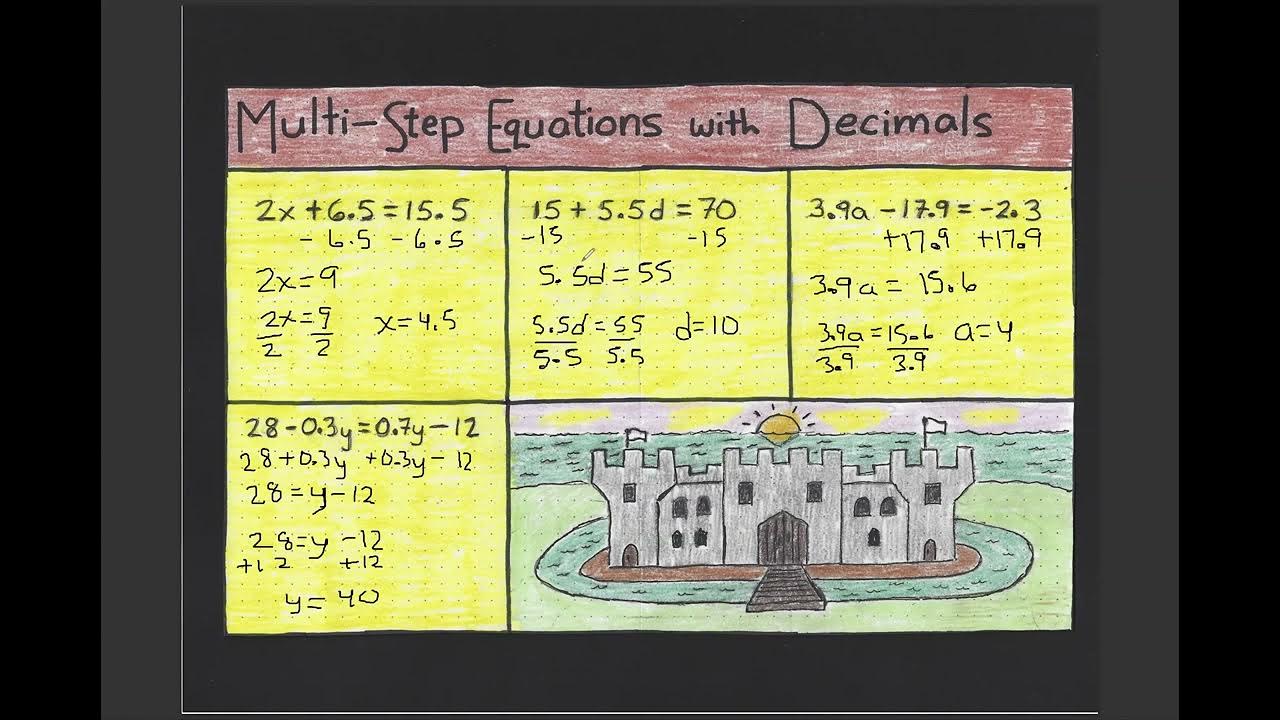 Multi-Step Equations with Decimals
2x + 6.5 = 15.5
- 6.5 - 6.5
2x = 9
2x = 9
2 2
x = 4.5
15 + 5.5d = 70
-15 -15
5.5d = 55
5.5d = 55
5.5 5.5
d = 10
3.9a - 17.9 = -2.3
+17.9 +17.9
3.9a = 15.6
3.9a = 15.6
3.9 3.9
a = 4
28 - 0.3y = 0.7y - 12
28 + 0.3y +0.3y - 12
28 = y - 12
28 = y - 12
+12 +12
y = 40